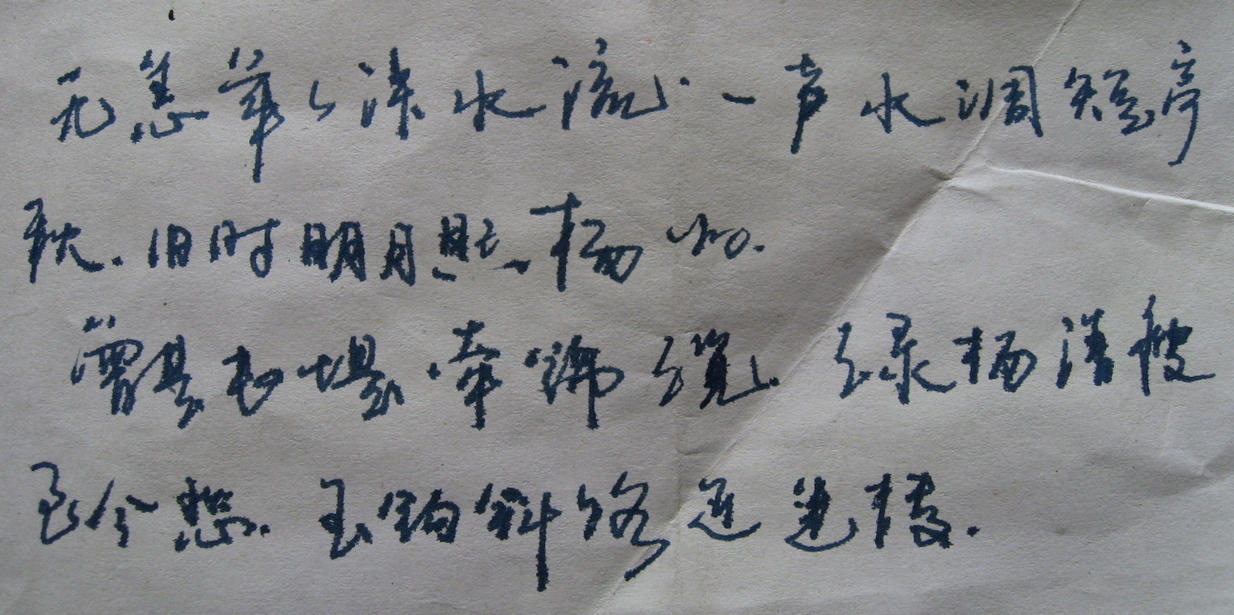 无恙年々汴水流.一声水调短亭
秋.旧时明月照杨州.
曾是长堤牵锦缆.绿杨清瘦
至今愁.玉钩斜路近迷楼.